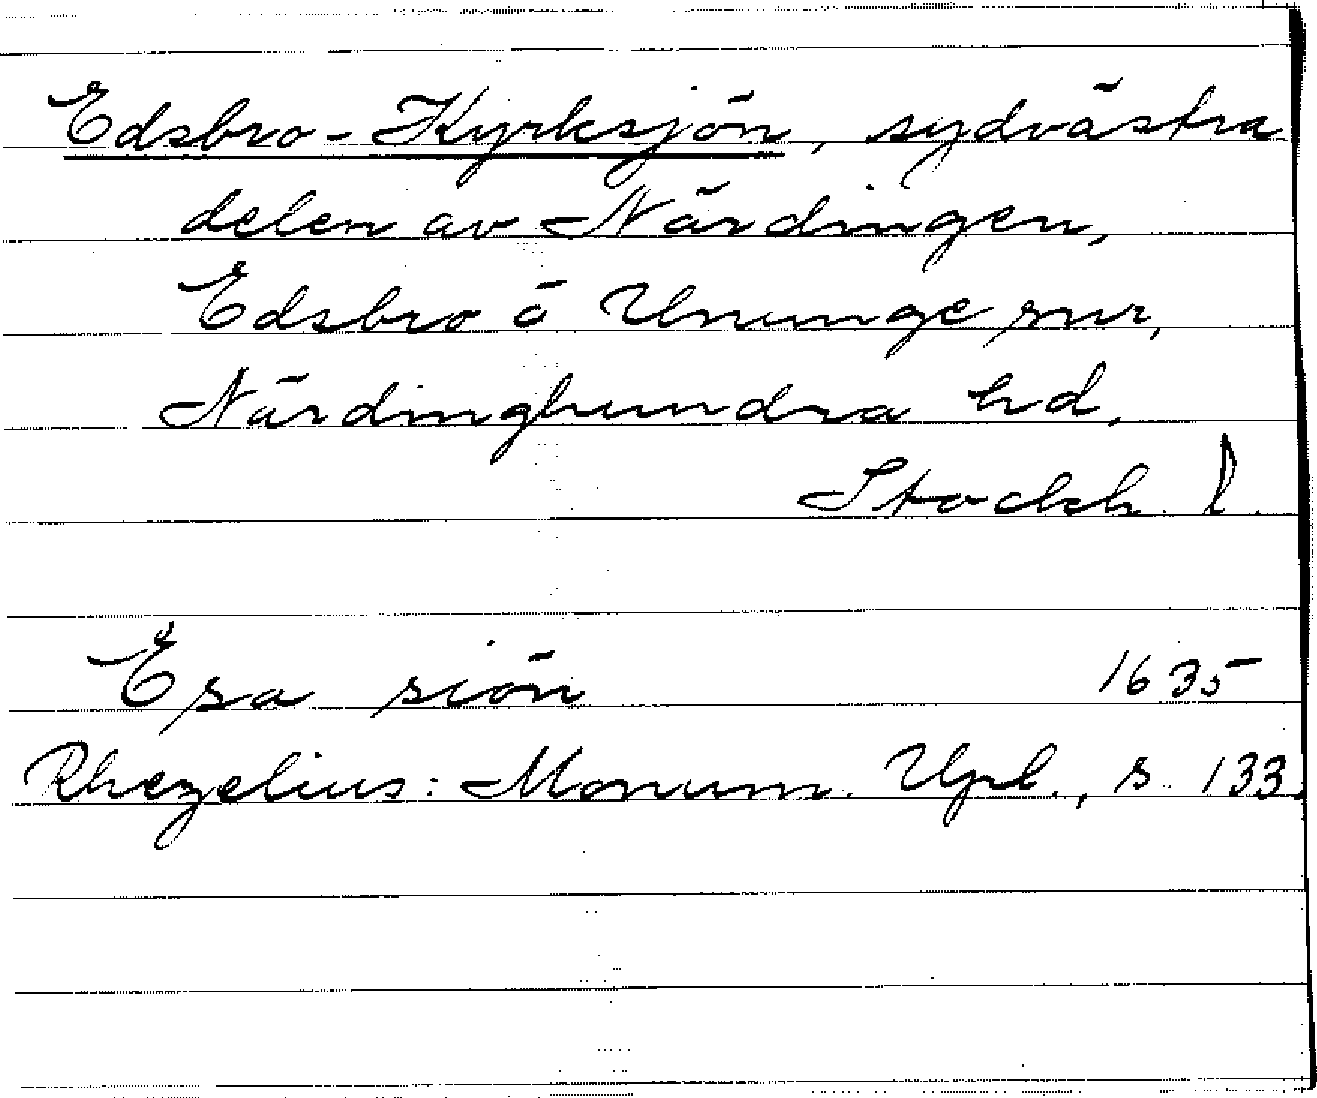 Edsbro-Kyrksjön, sydvästra
delen av Närdingen,
Edsbro o Ununge snr,
Närdinghundra hd,
Stockh. l.
Esa siön 1635
Rhezelius: Monum. Upl., s. 133.